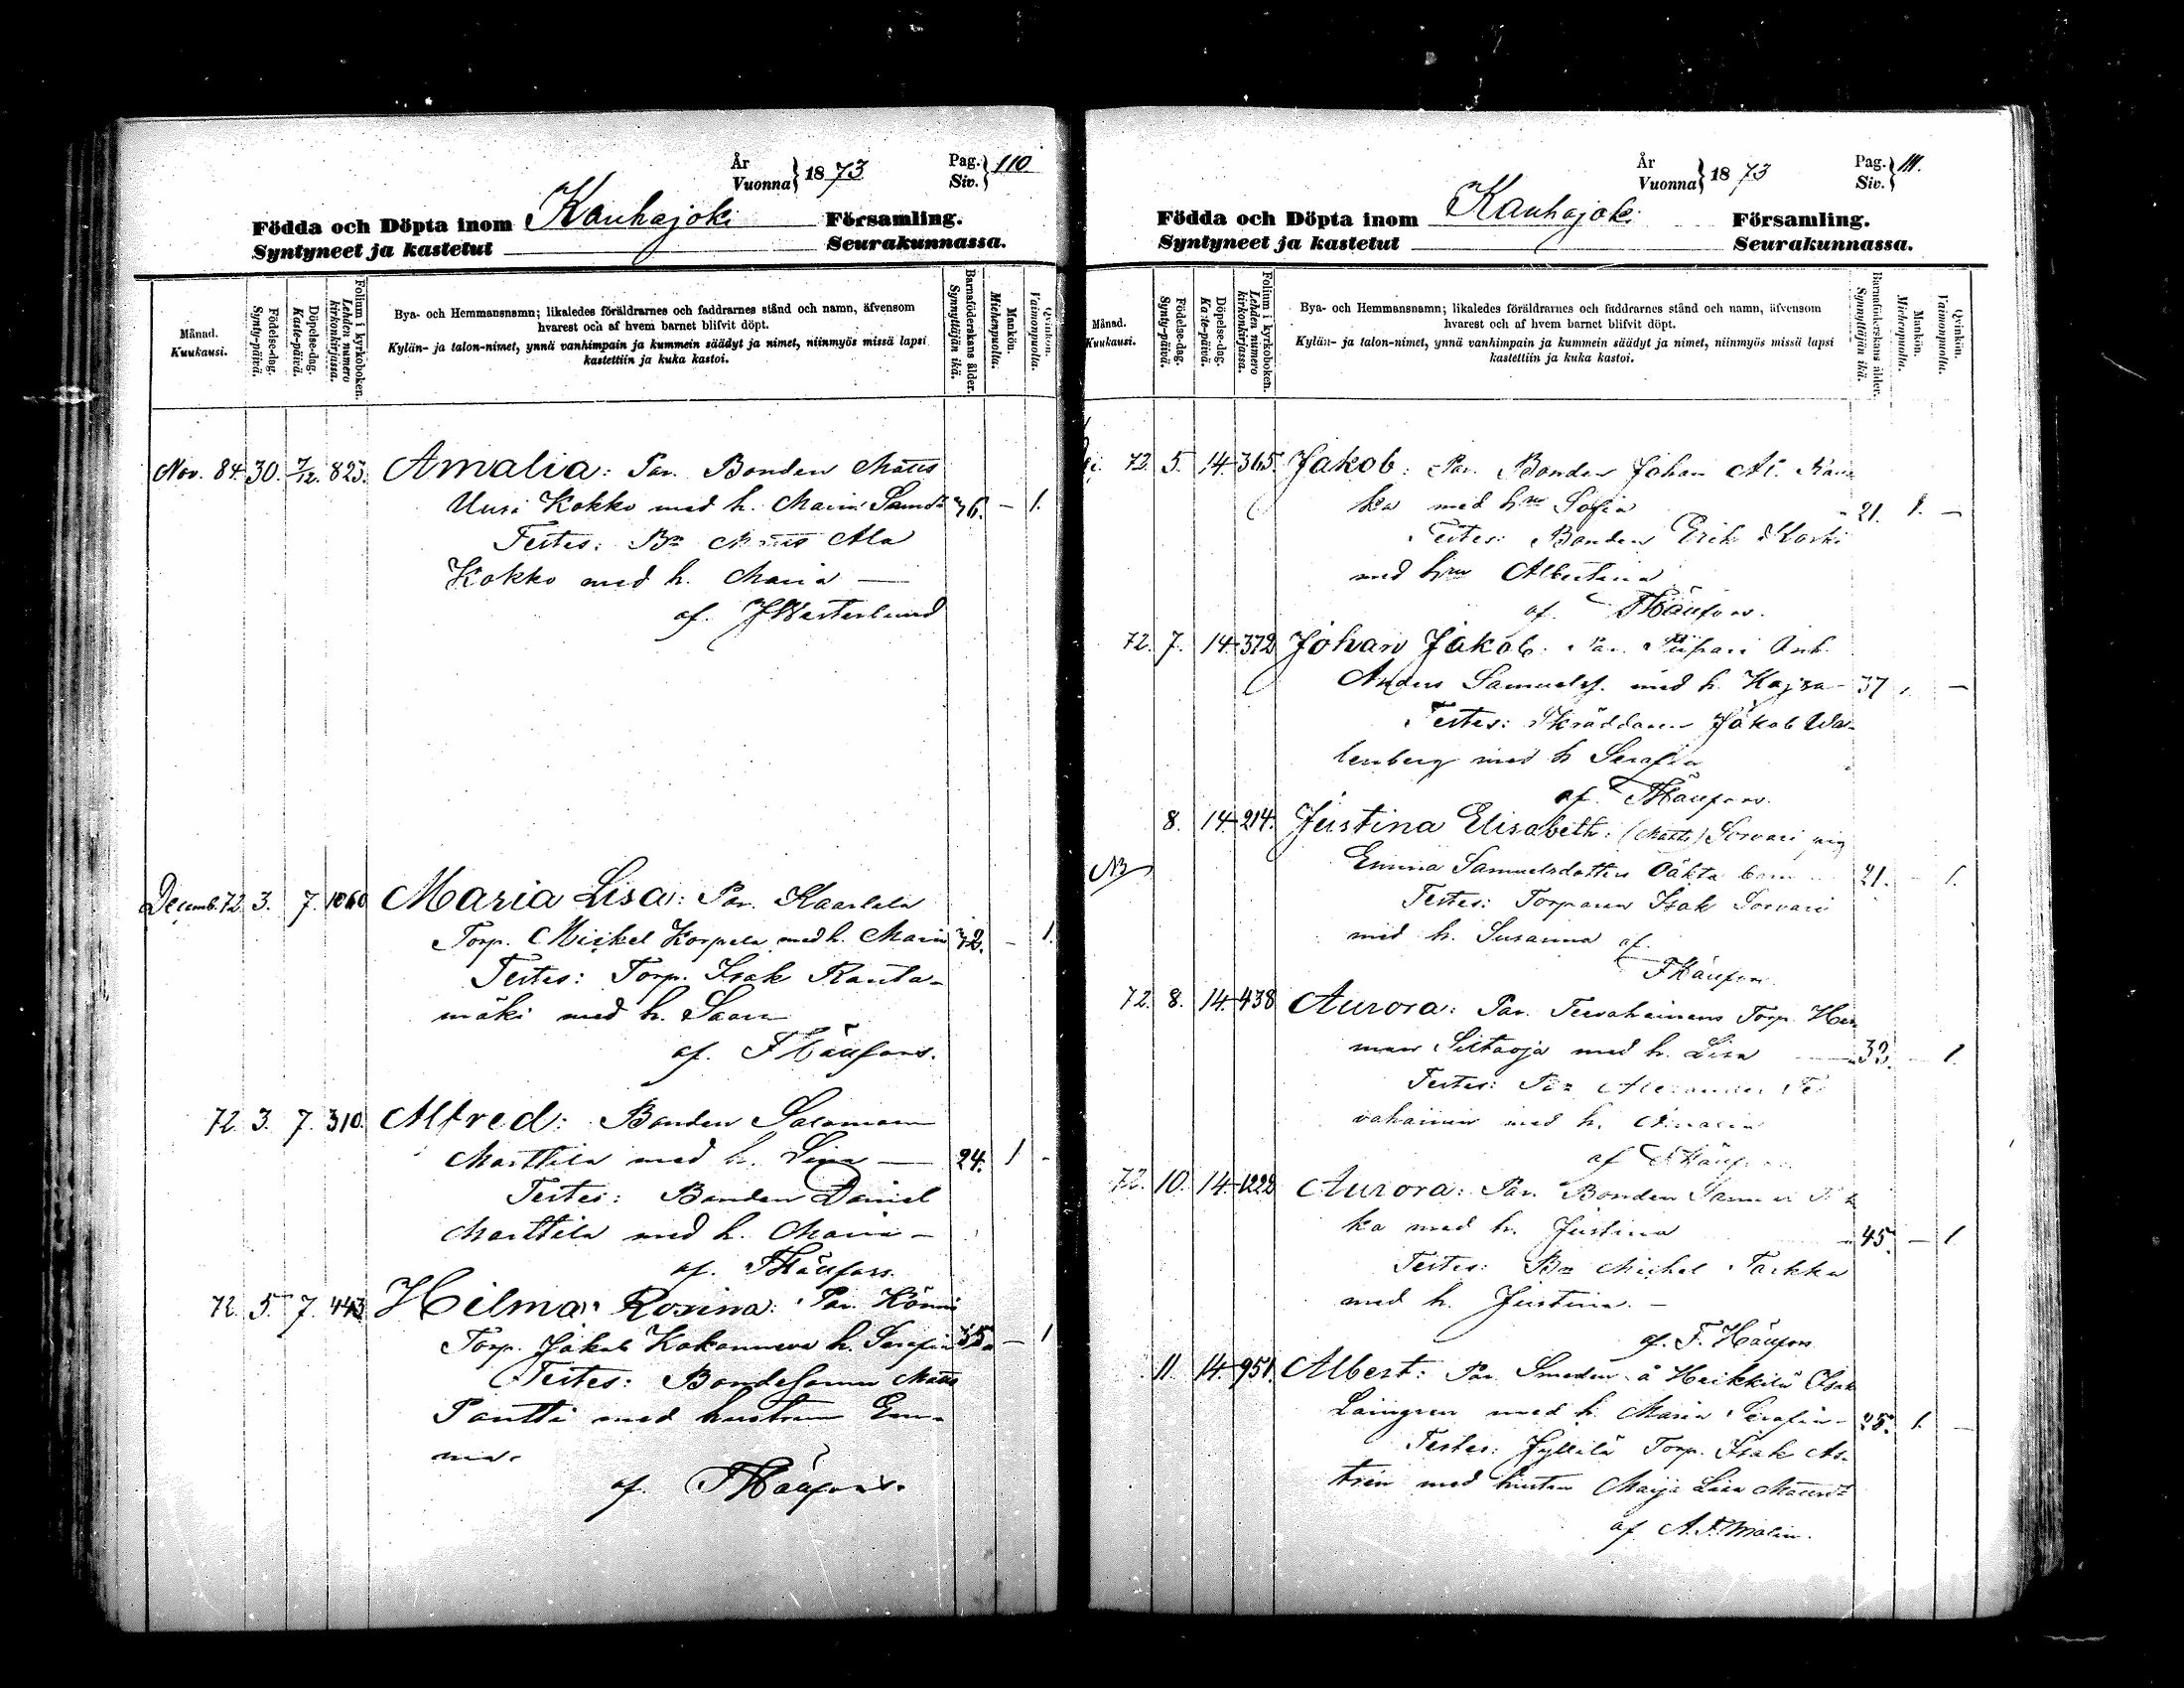 År
Vuonna } 1873
Pag.
Siv. } 110
Födda och Döpta inom Kauhajoki Församling.
Syntyneet ja kastetut Seurakunnassa.
Månad.
Kuukausi.
Födelse-dag.
Synty-päivä.
Döpelse-dag.
Kaste-päivä.
Folium i kyrkoboken.
Lehden numero kirkonkirjassa.
Bya- och Hemmansnamn; likaledes föräldrarnes och faddrarnes stånd och namn, äfvensom
hvarest och af hvem barnet blifvit döpt.
Kylän- ja talon-nimet, ynnä vanhimpain ja kummein säädyt ja nimet, niinmyös missä lapsi
kastettiin ja kuka kastoi.
Barnaföderskans ålder.
Synnyttäjän ikä.
Mankön.
Miehenpuolta.
Qvinkön.
Vaimonpuolta.
Nov. 84. 30. 7/12. 823. Amalia: Par. Bonden Matts
Uusi Kokko med h. Maria 36. – 1.
Testes: Bn Matts Ala
Kokko med h. Maria —
af. J Westerlund
Decemb. 72. 3. 7. 1060 Maria Lisa: Par. Kaarlela
Torp. Mickel Korpela med h. Maria 32. – 1.
Testes: Torp. Isak Ranta-
mäki med h. Saara
af. F Häufors.
72. 3. 7. 310. Alfred: Bonden Salomon
Marttila med h. Lisa — 24. 1 –
Testes: Bonden Daniel
Marttila med h. Maria –
af. F Häufors.
72. 5. 7. 443 Hilma Rosina: Par. Könni
Torp. Jakob Kokonneva h. Serafia 35. – 1
Testes: Bondesonen Matts
Pantti med hustrun Em-
ma.
af. F Häufors.
År
Vuonna } 1873
Pag.
Siv. } 111.
Födda och Döpta inom Kauhajoki Församling.
Syntyneet ja kastetut Seurakunnassa.
Månad.
Kuukausi.
Födelse-dag.
Synty-päivä.
Döpelse-dag.
Kaste-päivä.
Folium i kyrkoboken.
Lehden numero kirkonkirjassa.
Bya- och Hemmansnamn; likaledes föräldrarnes och faddrarnes stånd och namn, äfvensom
hvarest och af hvem barnet blifvit döpt.
Kylän- ja talon-nimet, ynnä vanhimpain ja kummein säädyt ja nimet, niinmyös missä lapsi
kastettiin ja kuka kastoi.
Barnaföderskans ålder.
Synnyttäjän ikä.
Mankön.
Miehenpuolta.
Qvinkön.
Vaimonpuolta.
72. 5. 14. 365. Jakob: Par. Bonden Johan Al.
ka med hru Sofia 21. 1. –
Testes: Bonden Erik Koski
med hru Albertina
af. F Häufors.
72. 7. 14. 372 Johan Jakob: Par. Inh.
Anders Samuelsf. med h. Kajsa – 37 1. –
Testes: Skräddaren Jakob Wa-
lenberg med h Serafia
af. F Häufors.
8. 14. 214. Justina Elisabeth: (Matts) Sorvari pig
NB Emma Samuelsdotters oäkta barn 21. – 1.
Testes: Torparen Isak Sorvari
med h. Susanna af.
F Häufors
72. 8. 14. 438 Aurora: Par. Tervahainens Torp. Her
man Siltaoja med h. Lisa 32. – 1.
Testes: Alexander Ter
vahainen med h. Amalia
af F Häufors
72. 10. 14. 1222 Aurora: Par. Bonden
ka med h. Justina 45. – 1
Testes: Bn Michel Tarkka
med h. Justina. –
af. F. Häufors
11. 14. 951. Albert: Par Smeden å Heikkilä Isak
Laingren med h. Maria Serafia – 25. 1. –
Testes: Jyllilä Torp. Isak As-
trén med hustrun Maija Lisa
af A. F. Malin.